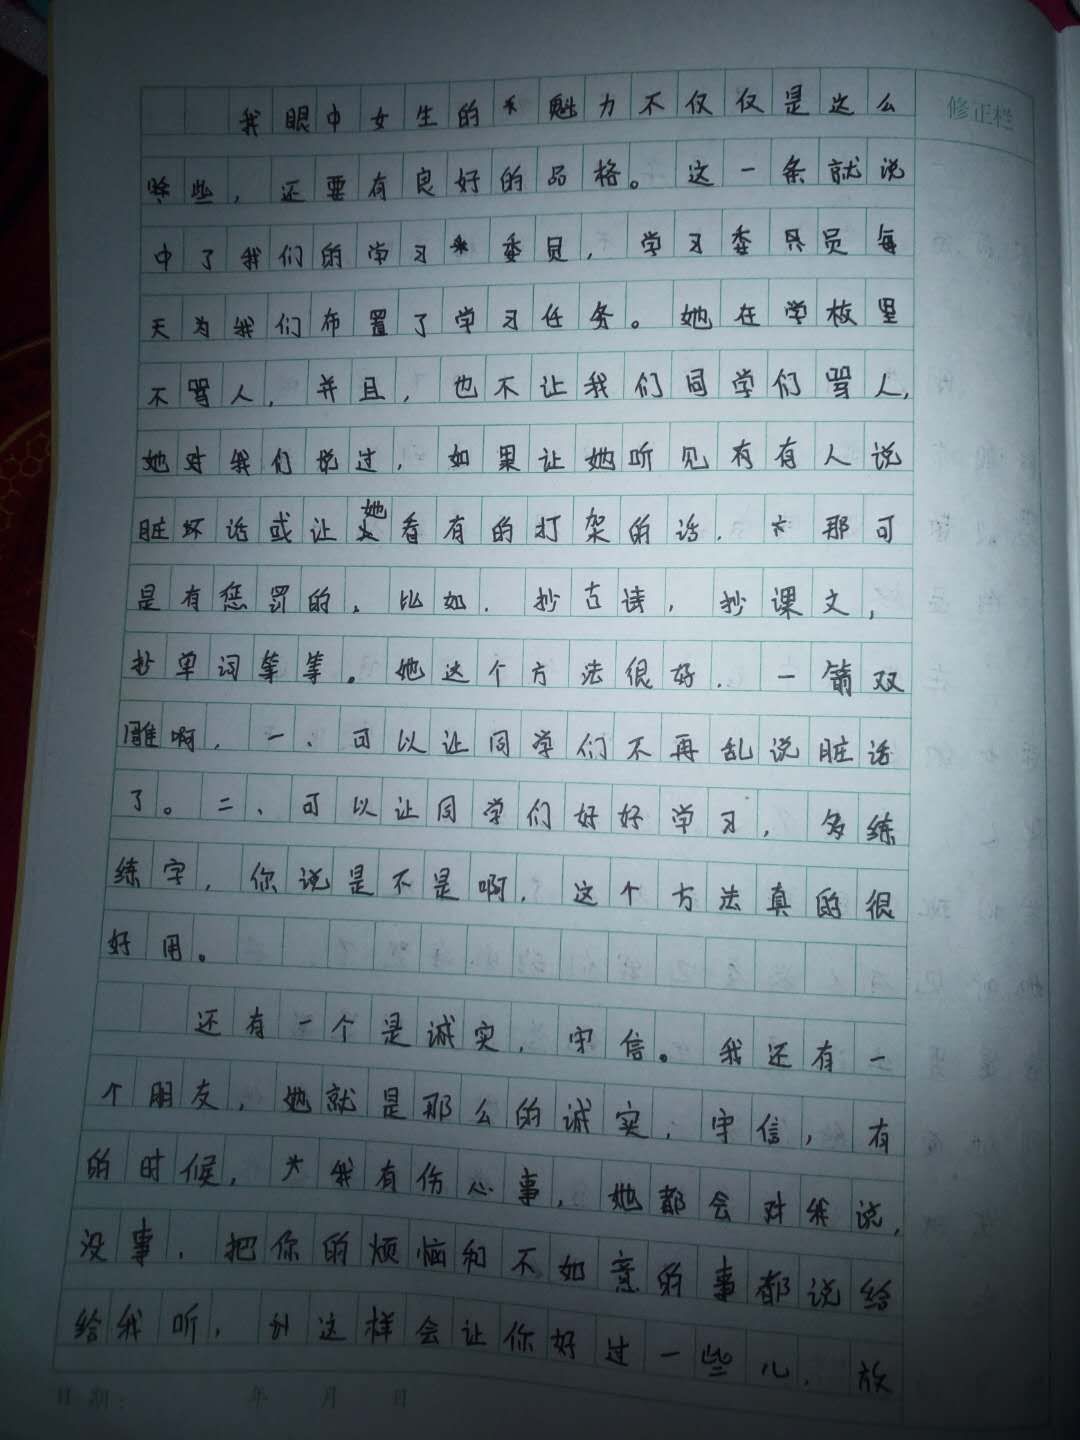 我眼中女生的魁力不仅仅是这么
修正栏
些，还要有良好的品格。这一条就说
中了我们的学习委员，学习委员员每
天为我们布置了学习任务。她在学校里
不骂人，并且，也不让我们同学们骂人，
她对我们说过，如果让她听见有有人说
脏坏话或让她看有的打架的话，那可
是有惩罚的，比如，抄古诗，抄课文，
抄单词等等。她这个方法很好，一箭双
雕啊，一、可以让同学们不再乱说脏话
了。二、可以让同学们好好学习，多练
练字，你说是不是啊，这个方法真的很
好用。
还有一个是诚实，守信。我还有一
个朋友，她就是那么的诚实，守信，有
的时候，我有伤心事，她都会对我说，
没事，把你的烦恼和不如意的事都说给
给我听，这样会让你好过一些儿，放
日期： 年 月 日